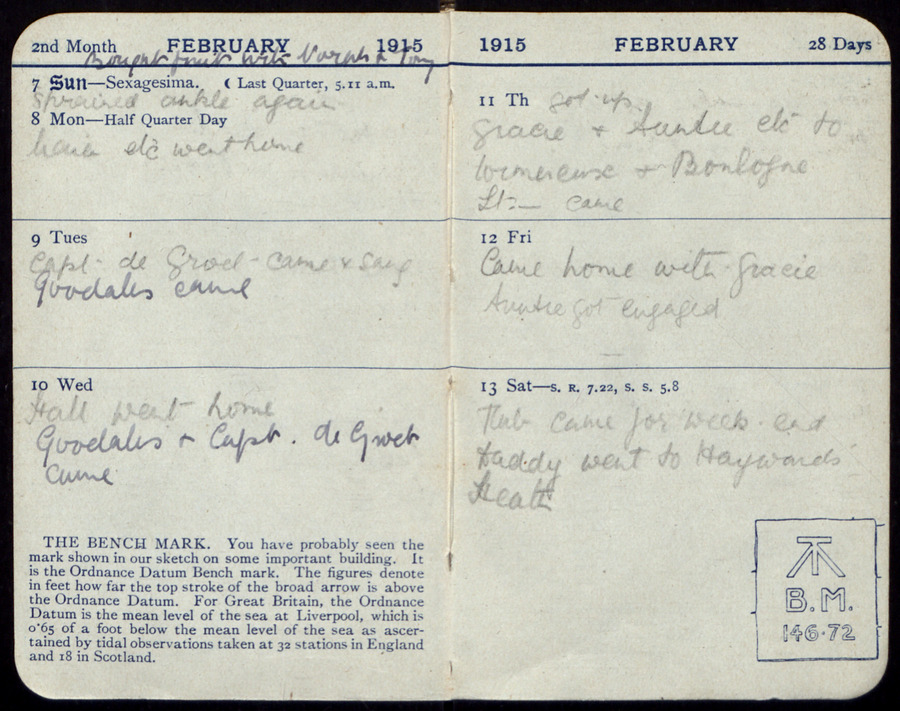 2nd Month FEBRUARY 1915
Bought fruit with & Tony
7 Sun—Sexagesima. ☾ Last Quarter, 5.11 a.m.
Sprained ankle again
8 Mon—Half Quarter Day
etc went home
9 Tues
Capt. de Groot - came & sang
Goodales came
10 Wed
Hall went home
Goodales & Capt. de Groot
came
THE BENCH MARK. You have probably seen the
mark shown in our sketch on some important building. It
is the Ordnance Datum Bench mark. The figures denote
in feet how far the top stroke of the broad arrow is above
the Ordnance Datum. For Great Britain, the Ordnance
Datum is the mean level of the sea at Liverpool, which is
0·65 of a foot below the mean level of the sea as ascer-
tained by tidal observations taken at 32 stations in England
and 18 in Scotland.
1915 FEBRUARY 28 Days
11 Th got up.
Gracie & Auntie etc to
& Boulogne
Lt:— came
12 Fri
Came home with Gracie
Auntie got engaged
13 Sat—S. R. 7.22, S. S. 5.8
came for week-end
Daddy went to Haywards
Heath
B.M.
146·72